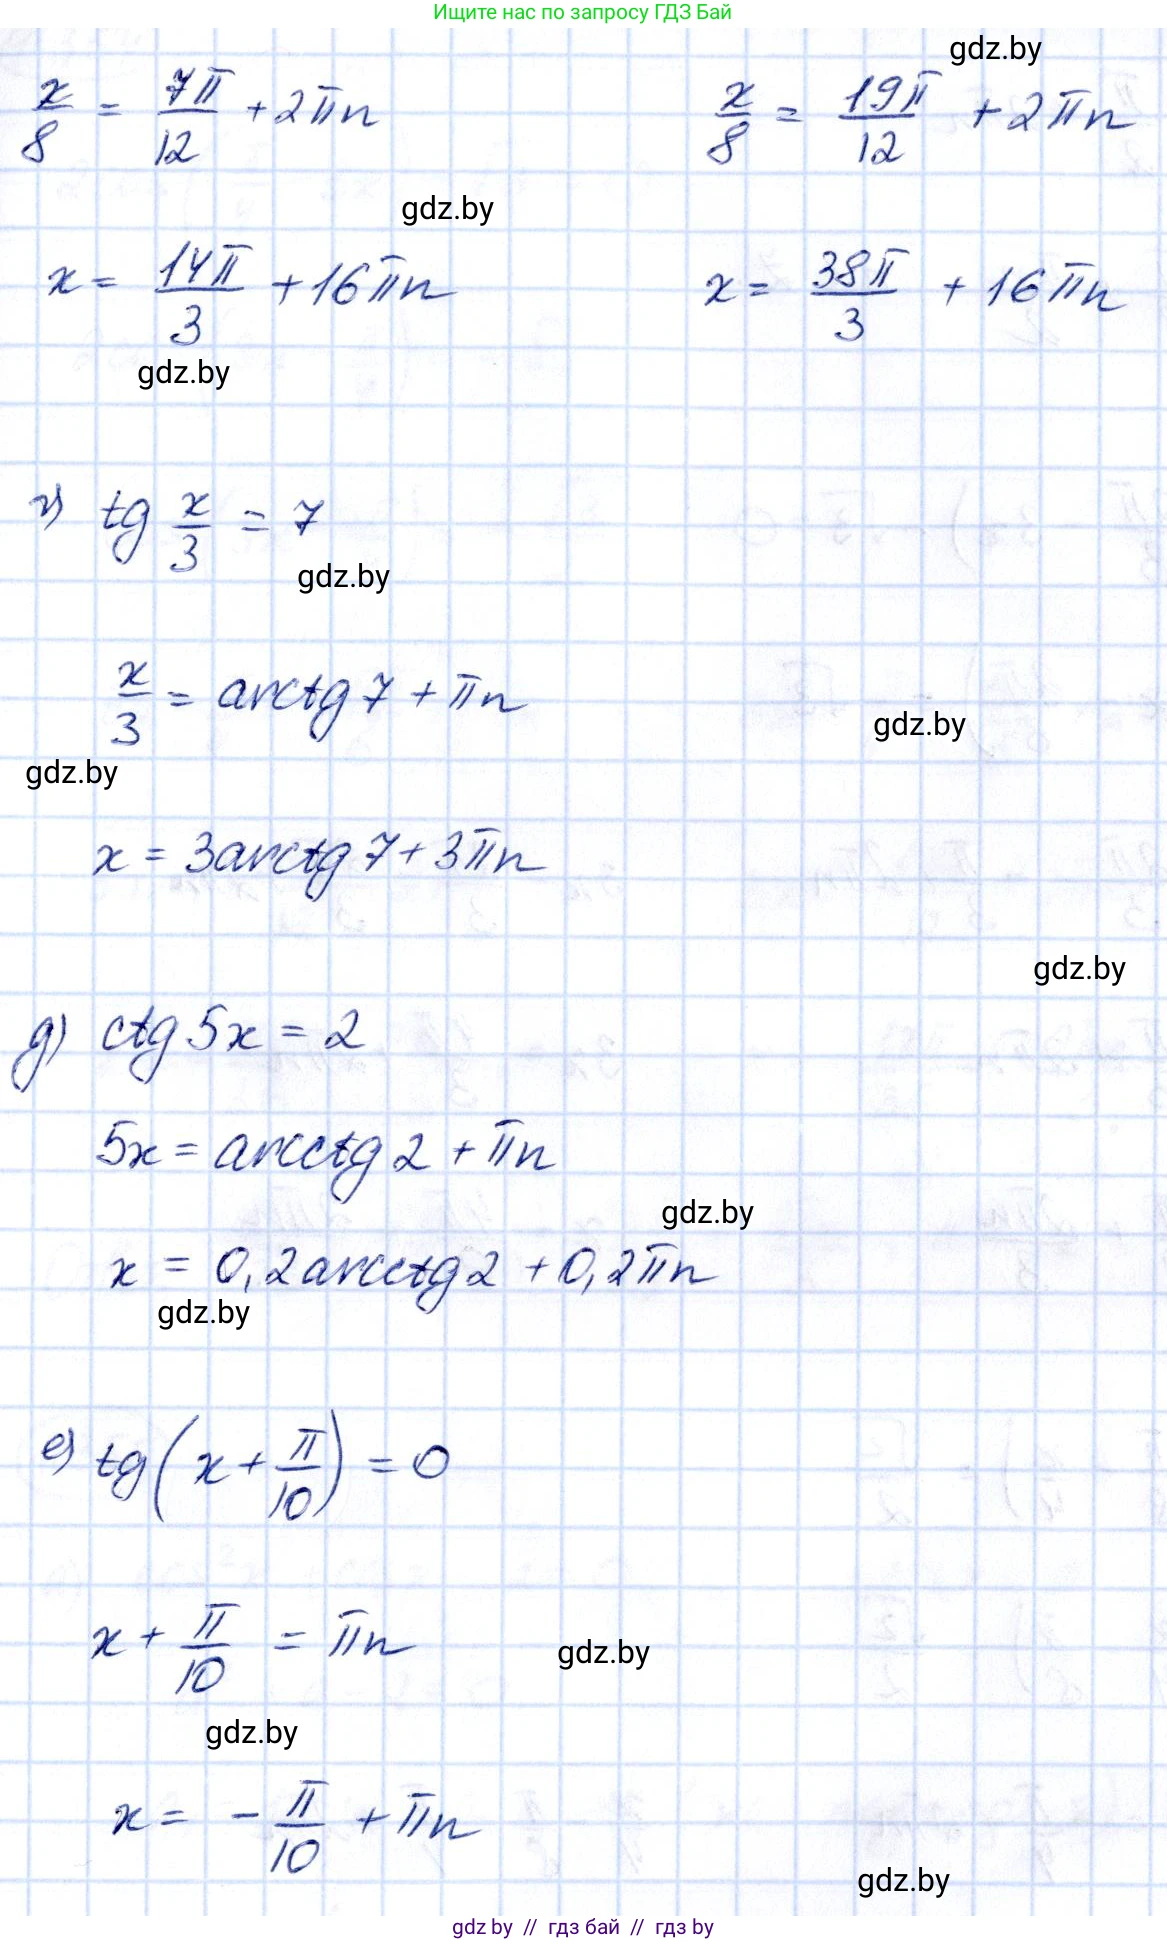 Ищите нас по запросу ГДЗ Бай
gdz.by
x/8 = 7π/12 + 2πn
x/8 = 19π/12 + 2πn
gdz.by
x = 14π/3 + 16πn
x = 38π/3 + 16πn
gdz.by
г) tg x/3 = 7
gdz.by
x/3 = arctg 7 + πn
gdz.by
gdz.by
x = 3arctg 7 + 3πn
gdz.by
д) ctg 5x = 2
5x = arcctg 2 + πn
gdz.by
x = 0,2arcctg 2 + 0,2πn
gdz.by
е) tg(x + π/10) = 0
x + π/10 = πn
gdz.by
gdz.by
x = - π/10 + πn
gdz.by
gdz by // гдз бай // гдз by